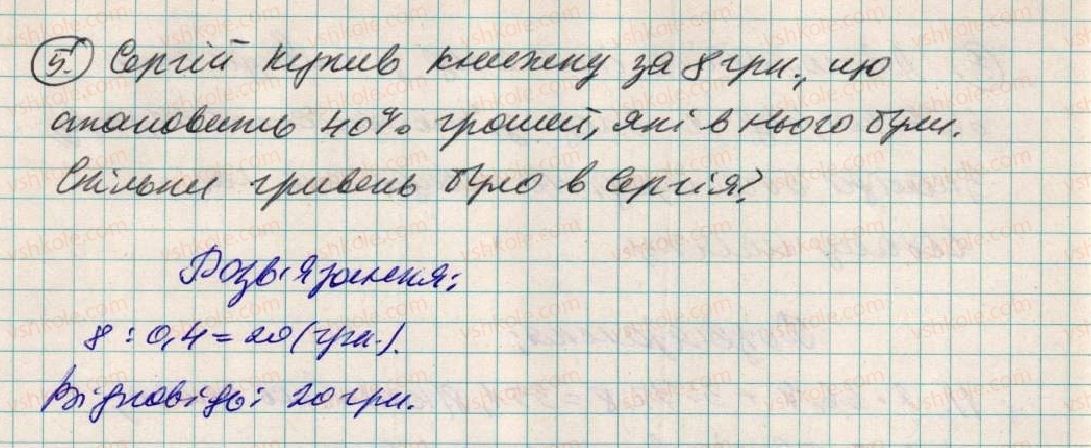 5. Сергій купив книжку за 8 грн., що
становить 40% грошей, які в нього були.
Скільки гривень було в Сергія?
Розв'язання:
8 : 0,4 = 20 (грн.).
Відповідь: 20 грн.